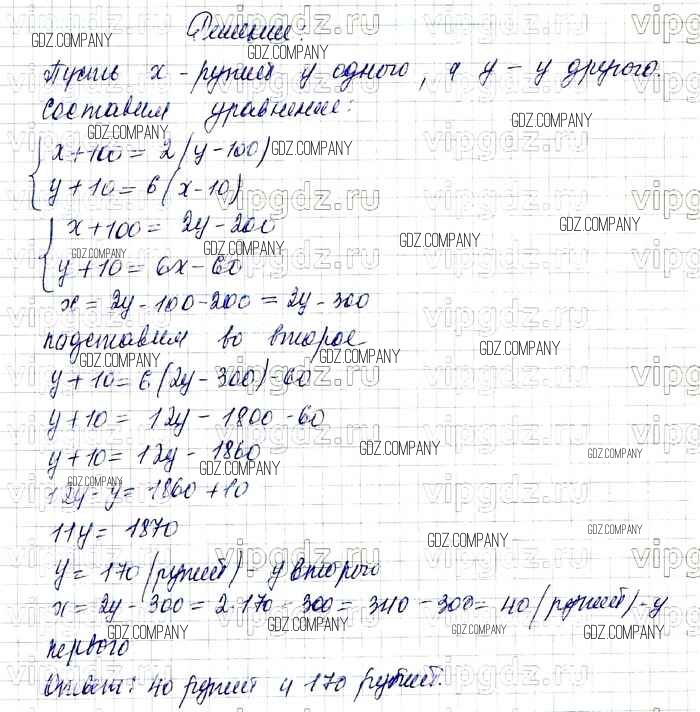 Решение.
Пусть x - рупий у одного, а y - у другого.
Составим уравнение:
x+100 = 2(y-100)
y+10 = 6(x-10)
x+100 = 2y-200
y+10 = 6x-60
x = 2y-100-200 = 2y-300
подставим во второе
y+10 = 6(2y-300)-60
y+10 = 12y-1800-60
y+10 = 12y-1860
12y-y = 1860+10
11y = 1870
y = 170 (рупий) - у второго
x = 2y-300 = 2·170-300 = 340-300 = 40 (рупий) - у
первого
Ответ: 40 рупий и 170 рупий.
GDZ.COMPANY
vipgdz.ru